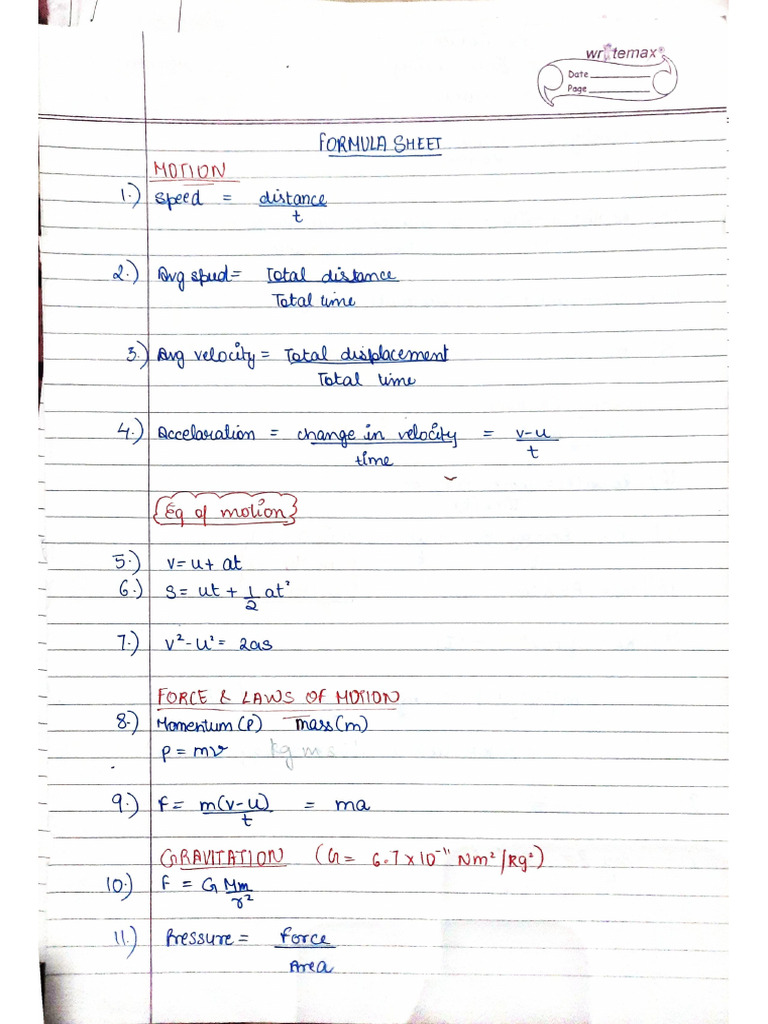 writemax
Date
Page
FORMULA SHEET
MOTION
1.) Speed = distance
t
2.) Avg speed = Total distance
Total time
3.) Avg velocity = Total displacement
Total time
4.) Accelaration = change in velocity = v-u
time t
Eq of motion
5.) v = u + at
6.) S = ut + 1/2 at²
7.) v² - u² = 2as
FORCE & LAWS OF MOTION
8.) Momentum (P) mass (m)
p = mv kg ms
9.) F = m(v-u) = ma
t
GRAVITATION (G = 6.7 x 10⁻¹¹ Nm²/kg²)
10.) F = G Mm
r²
11.) Pressure = force
Area